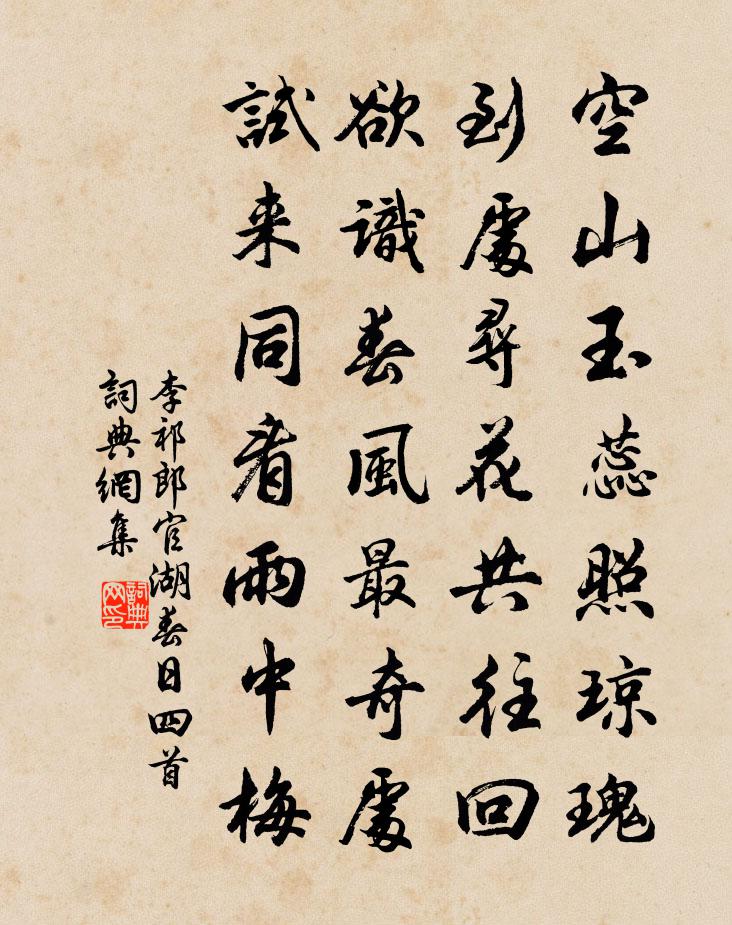 空山玉蕊照琼瑰
到處尋花共往回
欲識春風最奇處
試来同看雨中梅
李祁郎官湖春日四首
詞典網集
詞典网印